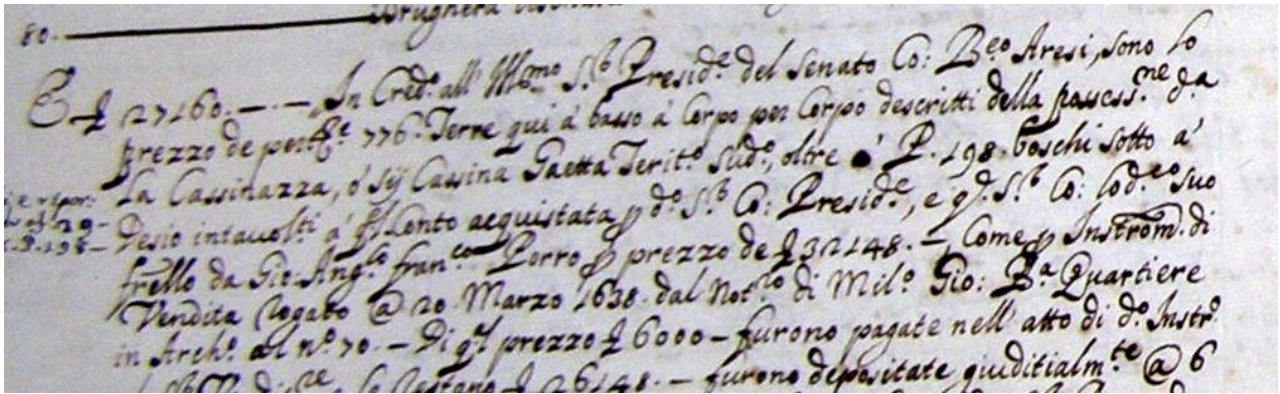 80. Brughera
E £ 27160. — — In Cred.º all' Ill.mo S.r Presid.e del Senato Co: B.eo Aresi, sono lo
prezzo de pert.e 776. Terre qui à basso à Corpo per Corpo descritti della possess.ne d.a
La Cassinazza, ò sij Cassina Gaetta Terit.º Sud.º, oltre à P. 198. boschi sotto à
Desio intavolti à Conto acquistata p d.º S.r Co: Presid.e, e q. S.r Co: Lod.eo suo
frello da Gio: Ang.lo Fran.co Porro p prezzo de £ 32148. —, Come p Instrom. di
Vendita rogato @ 20. Marzo 1638. dal Not.ro di Mil.º Gio: B.a Quartiere
in Arch.º al n.º 70. — Di ql prezzo £ 6000 — furono pagate nell' atto di d.º Instr.º
le restano £ 26148. — furono depositate giuditialm.te @ 6